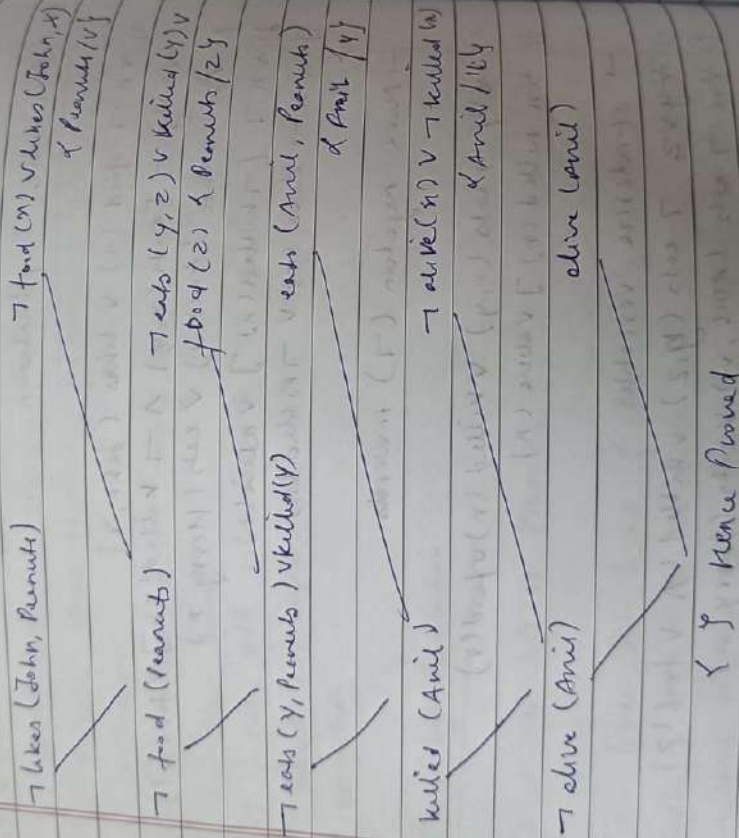 ¬ likes (John, Peanuts) ¬ food (x) ∨ likes (John, x)
{ Peanuts / x }
¬ food (Peanuts) ¬ eats (y, z) ∨ killed (y) ∨
food (z) { Peanuts / z }
¬ eats (y, Peanuts) ∨ killed (y) eats (Anil, Peanuts)
{ Anil / y }
killed (Anil) ¬ alive (k) ∨ ¬ killed (k)
{ Anil / k }
¬ alive (Anil) alive (Anil)
{ } Hence Proved.